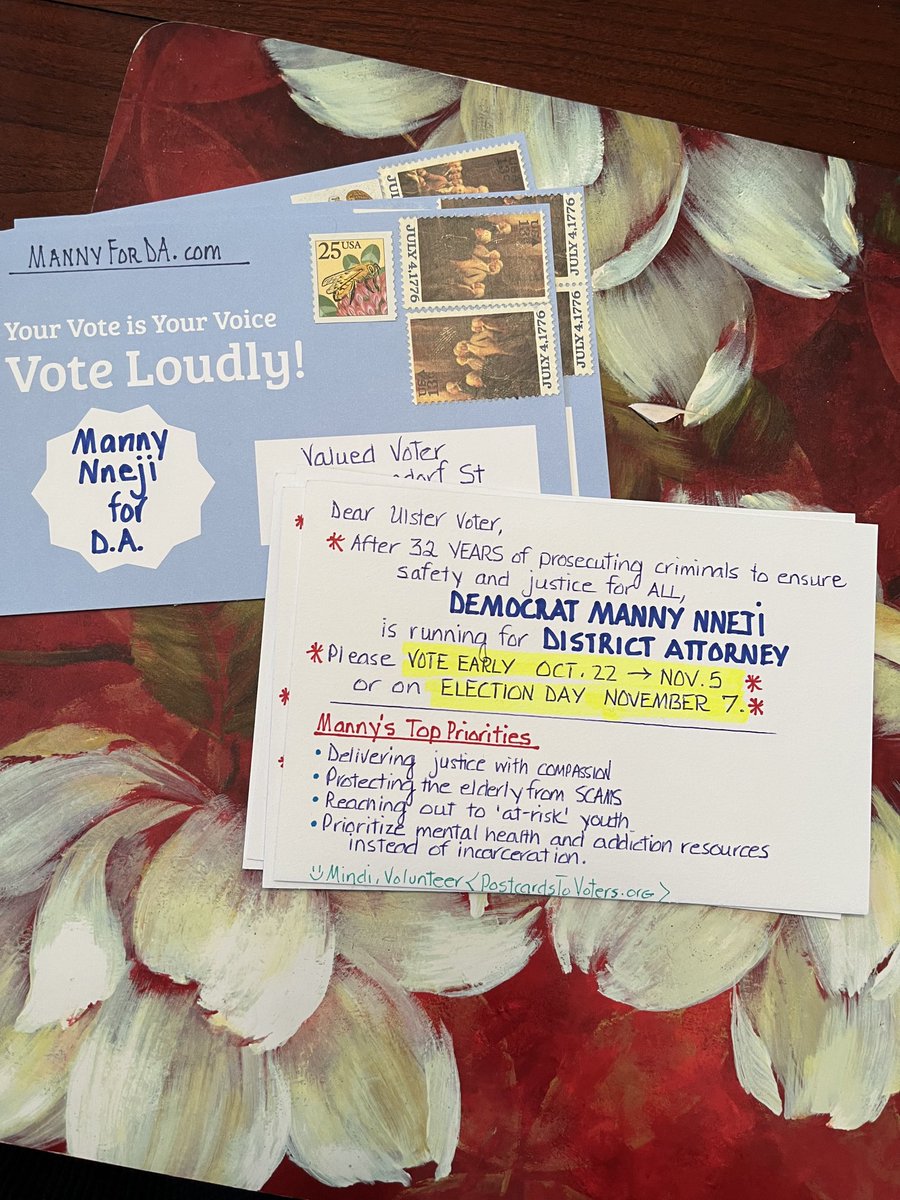 MANNYFORDA.COM
Your Vote is Your Voice
Vote Loudly!
Manny
Nneji
for
D.A.
25 USA
USA 13c
JULY 4,1776
JULY 4,1776
USA 13c
JULY 4,1776
JULY 4,1776
JULY 4,1776
USA 13c
Valued Voter
dorf St
Dear Ulster Voter,
* After 32 YEARS of prosecuting criminals to ensure
safety and justice for ALL,
DEMOCRAT MANNY NNEJI
is running for DISTRICT ATTORNEY
* Please VOTE EARLY OCT. 22 → NOV. 5 *
or on ELECTION DAY NOVEMBER 7. *
Manny's Top Priorities
• Delivering justice with COMPASSION
• Protecting the elderly from SCAMS
• Reaching out to 'at-risk' youth
• Prioritize mental health and addiction resources
instead of incarceration.
Mindi, Volunteer <PostcardsToVoters.org>